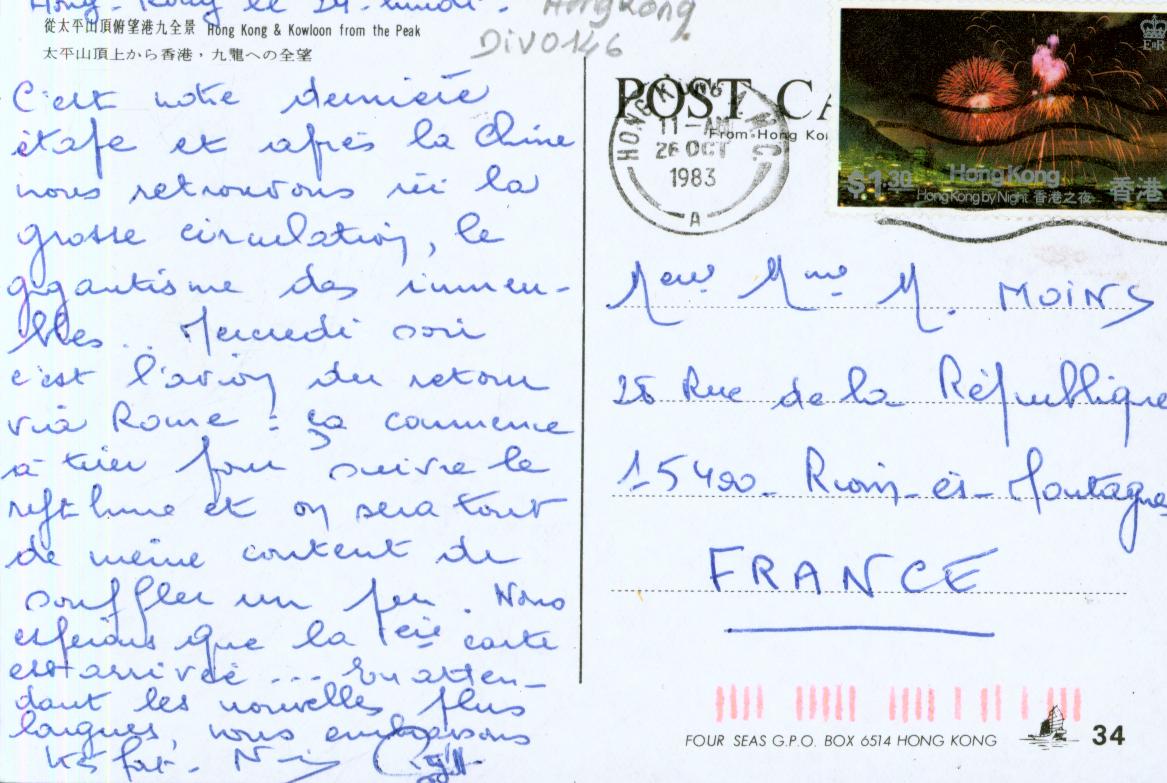 Hong-Kong le 24. lundi.
Hongkong
DIV0146
從太平山頂俯望港九全景 Hong Kong & Kowloon from the Peak
太平山頂上から香港，九龍への全望
C'est notre dernière
étape et après la Chine
nous retrouvons ici la
grosse circulation, le
gigantisme des immeu-
bles... Mercredi soir
c'est l'avion du retour
via Rome : ça commence
à tirer pour suivre le
rythme et on sera tout
de même content de
souffler un peu. Nous
espérions que la 1ère carte
est arrivée... En atten-
dant les nouvelles plus
longues, nous embrassons
très fort.
POST CA
From Hong Ko
HONG KONG
11-AM
26 OCT
1983
A
$1.30 Hong Kong
Hong Kong by Night 香港之夜 香港
E II R
M et Mme M. MOINS
25 Rue de la République
15400 - Riom-ès-Montagne
FRANCE
FOUR SEAS G.P.O. BOX 6514 HONG KONG
34